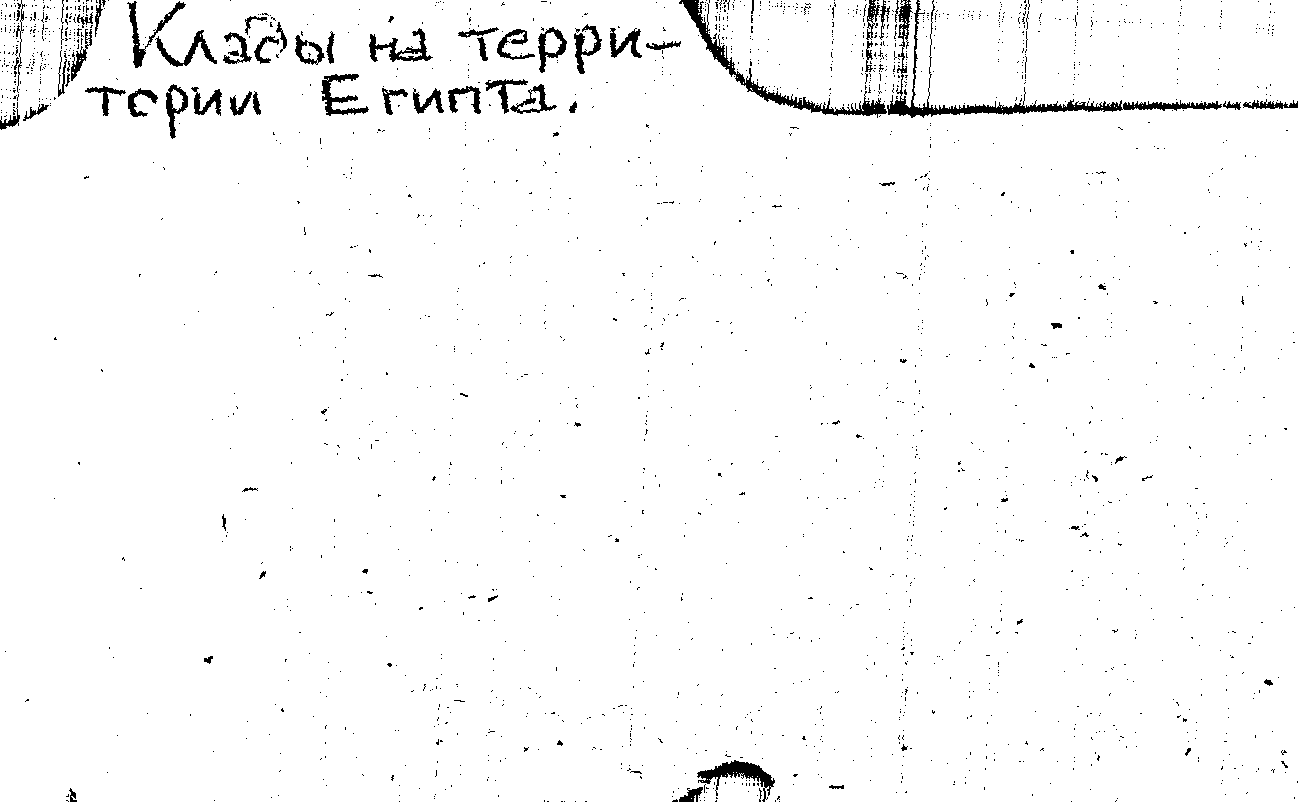 Клады на терри-
тории Египта.